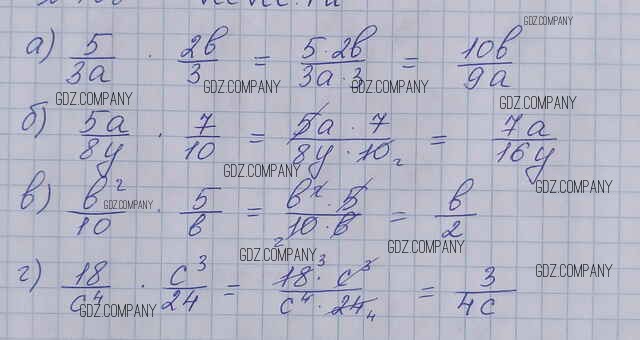 а) 5/3a · 2b/3 = 5·2b/3a·3 = 10b/9a
GDZ.COMPANY
GDZ.COMPANY GDZ.COMPANY
GDZ.COMPANY GDZ.COMPANY
б) 5a/8y · 7/10 = 5a·7/8y·10 2 = 7a/16y
GDZ.COMPANY GDZ.COMPANY
в) b²/10 · 5/b = b²·5/2 10·b = b/2
GDZ.COMPANY
GDZ.COMPANY GDZ.COMPANY
г) 18/c⁴ · c³/24 = 18 3·c³/c⁴·24 4 = 3/4c
GDZ.COMPANY GDZ.COMPANY